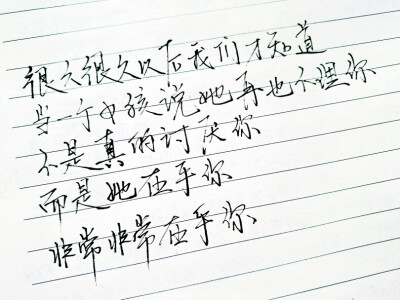 很久很久以后我们才知道
当一个女孩说她再也不理你
不是真的讨厌你
而是她在乎你
非常非常在乎你